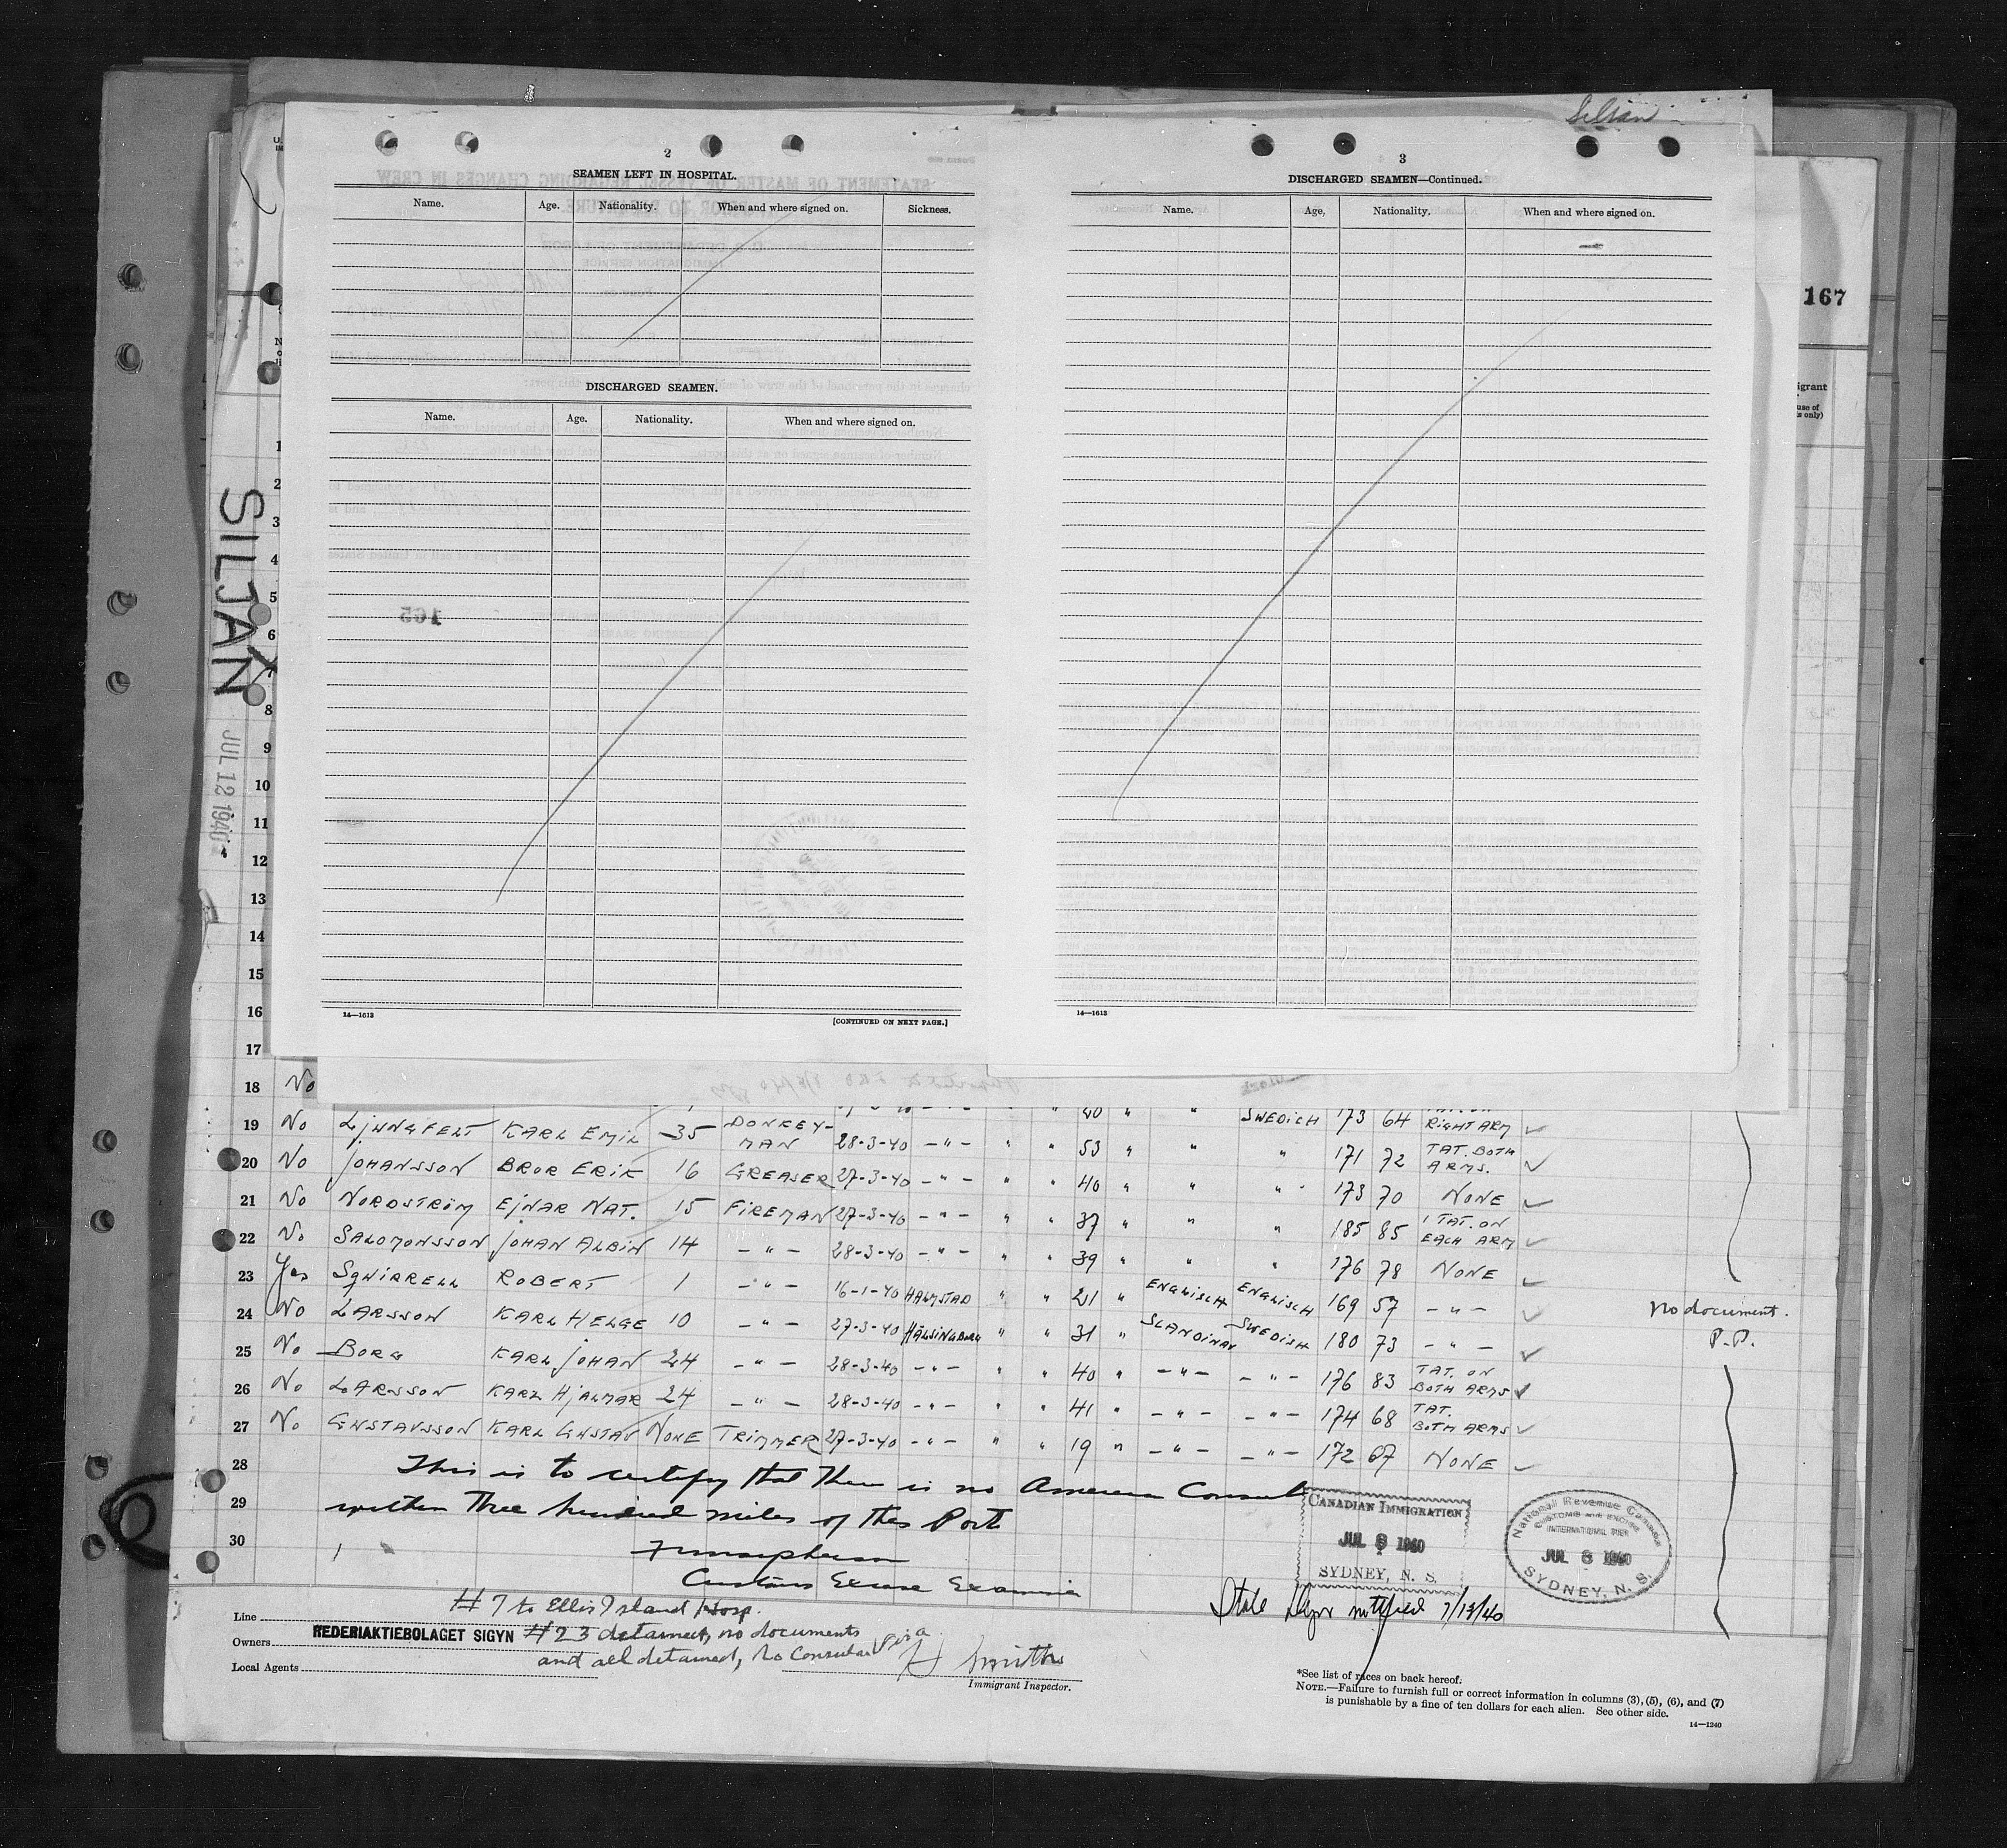 Siljan
2
SEAMEN LEFT IN HOSPITAL.
Name. Age. Nationality. When and where signed on. Sickness.
DISCHARGED SEAMEN.
Name. Age. Nationality. When and where signed on.
165
14—1613
[CONTINUED ON NEXT PAGE.]
3
DISCHARGED SEAMEN—Continued.
Name. Age. Nationality. When and where signed on.
14—1613
167
igrant
use of
ls only)
SILJAN
JUL 12 1940
1
2
3
4
5
6
7
8
9
10
11
12
13
14
15
16
17
18 No
19 No LJUNGFELT KARL EMIL 35 DONKEY-MAN 28-3-40 -"- " " 53 " " " 171 72 TAT. BOTH ARMS.
20 No JOHANSSON BROR ERIK 16 GREASER 27-3-40 -"- " " 40 " " " 173 70 NONE
21 No NORDSTRÖM EJNAR NAT. 15 FIREMAN 27-3-40 -"- " " 37 " " " 185 85 1 TAT. ON EACH ARM
22 No SALOMONSSON JOHAN ALBIN 14 -"- 28-3-40 -"- " " 39 " " " 176 78 NONE
23 Yes SQUIRRELL ROBERT 1 -"- 16-1-40 HALMSTAD " " 21 " ENGLISCH ENGLISCH 169 57 -"- No document.
24 No LARSSON KARL HELGE 10 -"- 27-3-40 HÄLSINGBORG " " 31 " SCANDINAV SWEDISH 180 73 -"- P.P.
25 No BORG KARL JOHAN 24 -"- 28-3-40 -"- " " 40 " -"- -"- 176 83 TAT. ON BOTH ARMS
26 No LARSSON KARL HJALMAR 24 -"- 28-3-40 -"- " " 41 " -"- -"- 174 68 TAT. BOTH ARMS
27 No GUSTAVSSON KARL GUSTAV NONE TRIMMER 27-3-40 -"- " " 19 " -"- -"- 172 67 NONE
SWEDISCH 173 64 RIGHT ARM
28 This is to certify that there is no American Consul
29 within three hundred miles of this Port
30
Customs Excise Examiner
CANADIAN IMMIGRATION
JUL 8 1940
SYDNEY, N. S.
National Revenue Canada
CUSTOMS AND EXCISE
INTERNATIONAL PIER
JUL 8 1940
SYDNEY, N. S.
State Dept notified 7/13/40
# 7 to Ellis Island Hosp.
Line
REDERIAKTIEBOLAGET SIGYN # 23 detained, no documents
Owners
and all detained, no Consular Visa
Local Agents
H Smith
Immigrant Inspector.
*See list of races on back hereof.
NOTE.—Failure to furnish full or correct information in columns (3), (5), (6), and (7)
is punishable by a fine of ten dollars for each alien. See other side.
14—1240